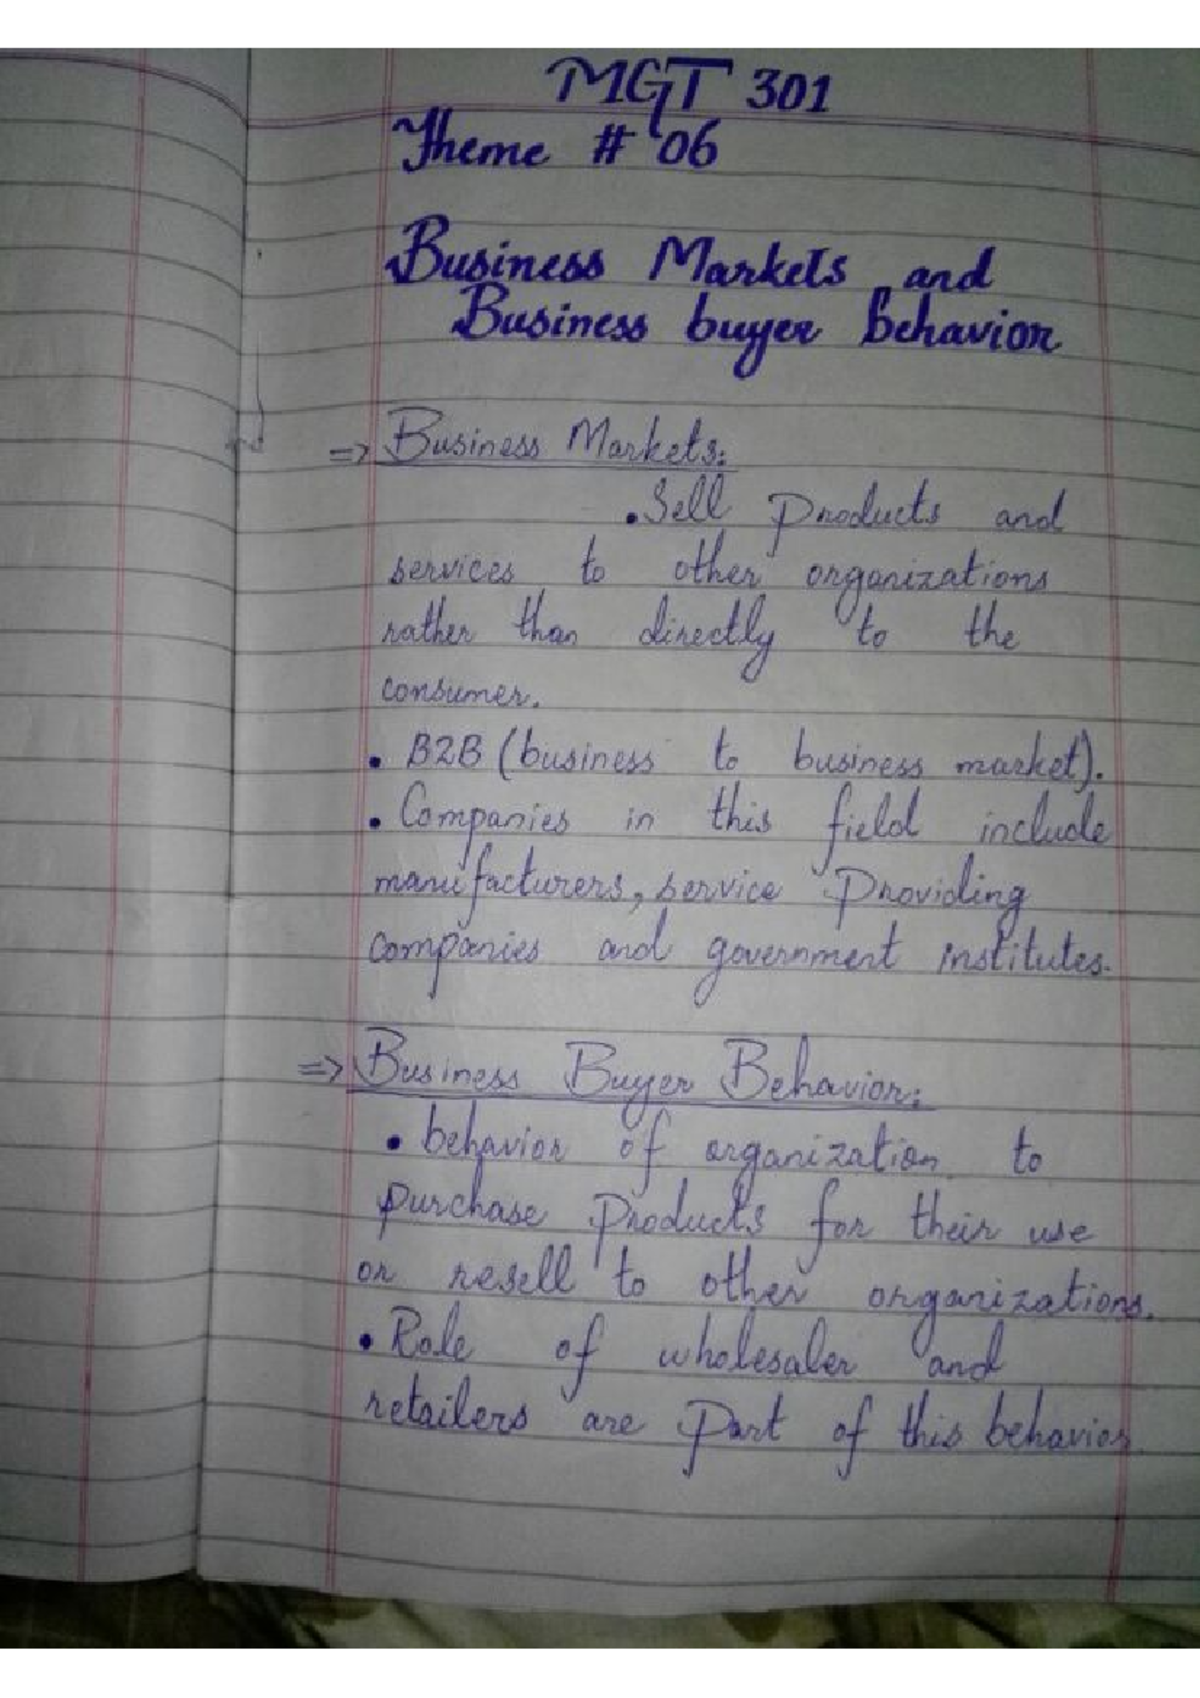 MGT 301
Theme # 06
Business Markets and
Business buyer behavior
=> Business Markets:
• Sell Products and
services to other organizations
rather than directly to the
consumer.
• B2B (business to business market).
• Companies in this field include
manufacturers, service Providing
companies and government institutes.
=> Business Buyer Behavior:
• behavior of organization to
purchase Products for their use
or resell to other organizations.
• Role of wholesaler and
retailers are Part of this behavior